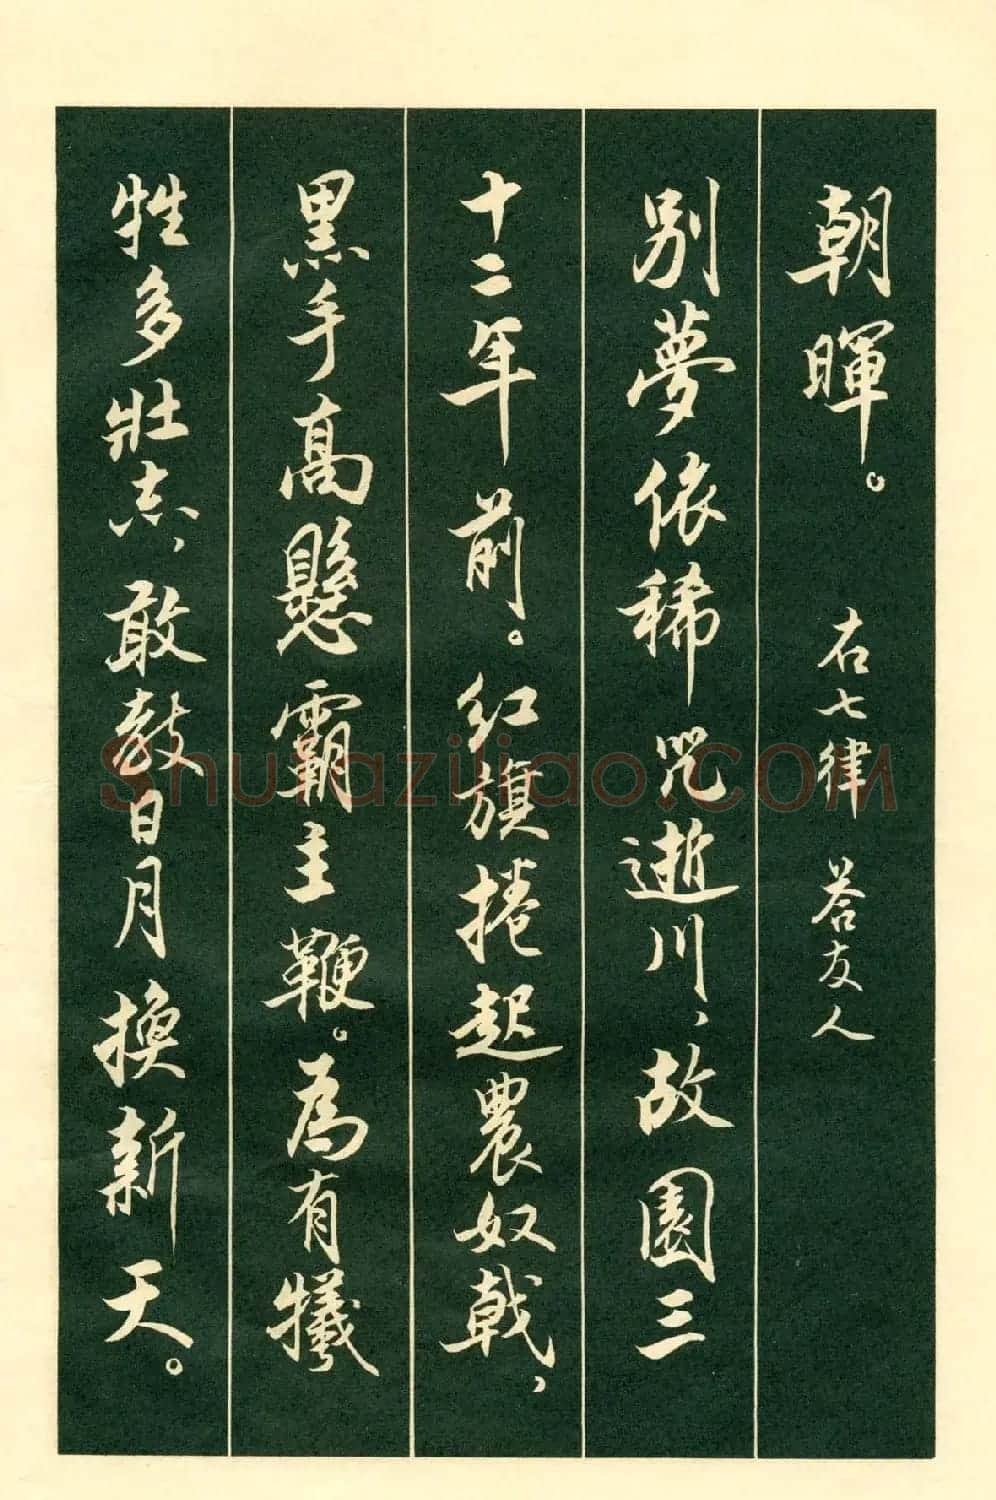 朝暉。 右七律 答友人
別夢依稀咒逝川、故園三
十二年前。紅旗捲起農奴戟、
黑手高懸霸主鞭。為有犧
牲多壯志、敢教日月換新天。
Shufaziliao.com